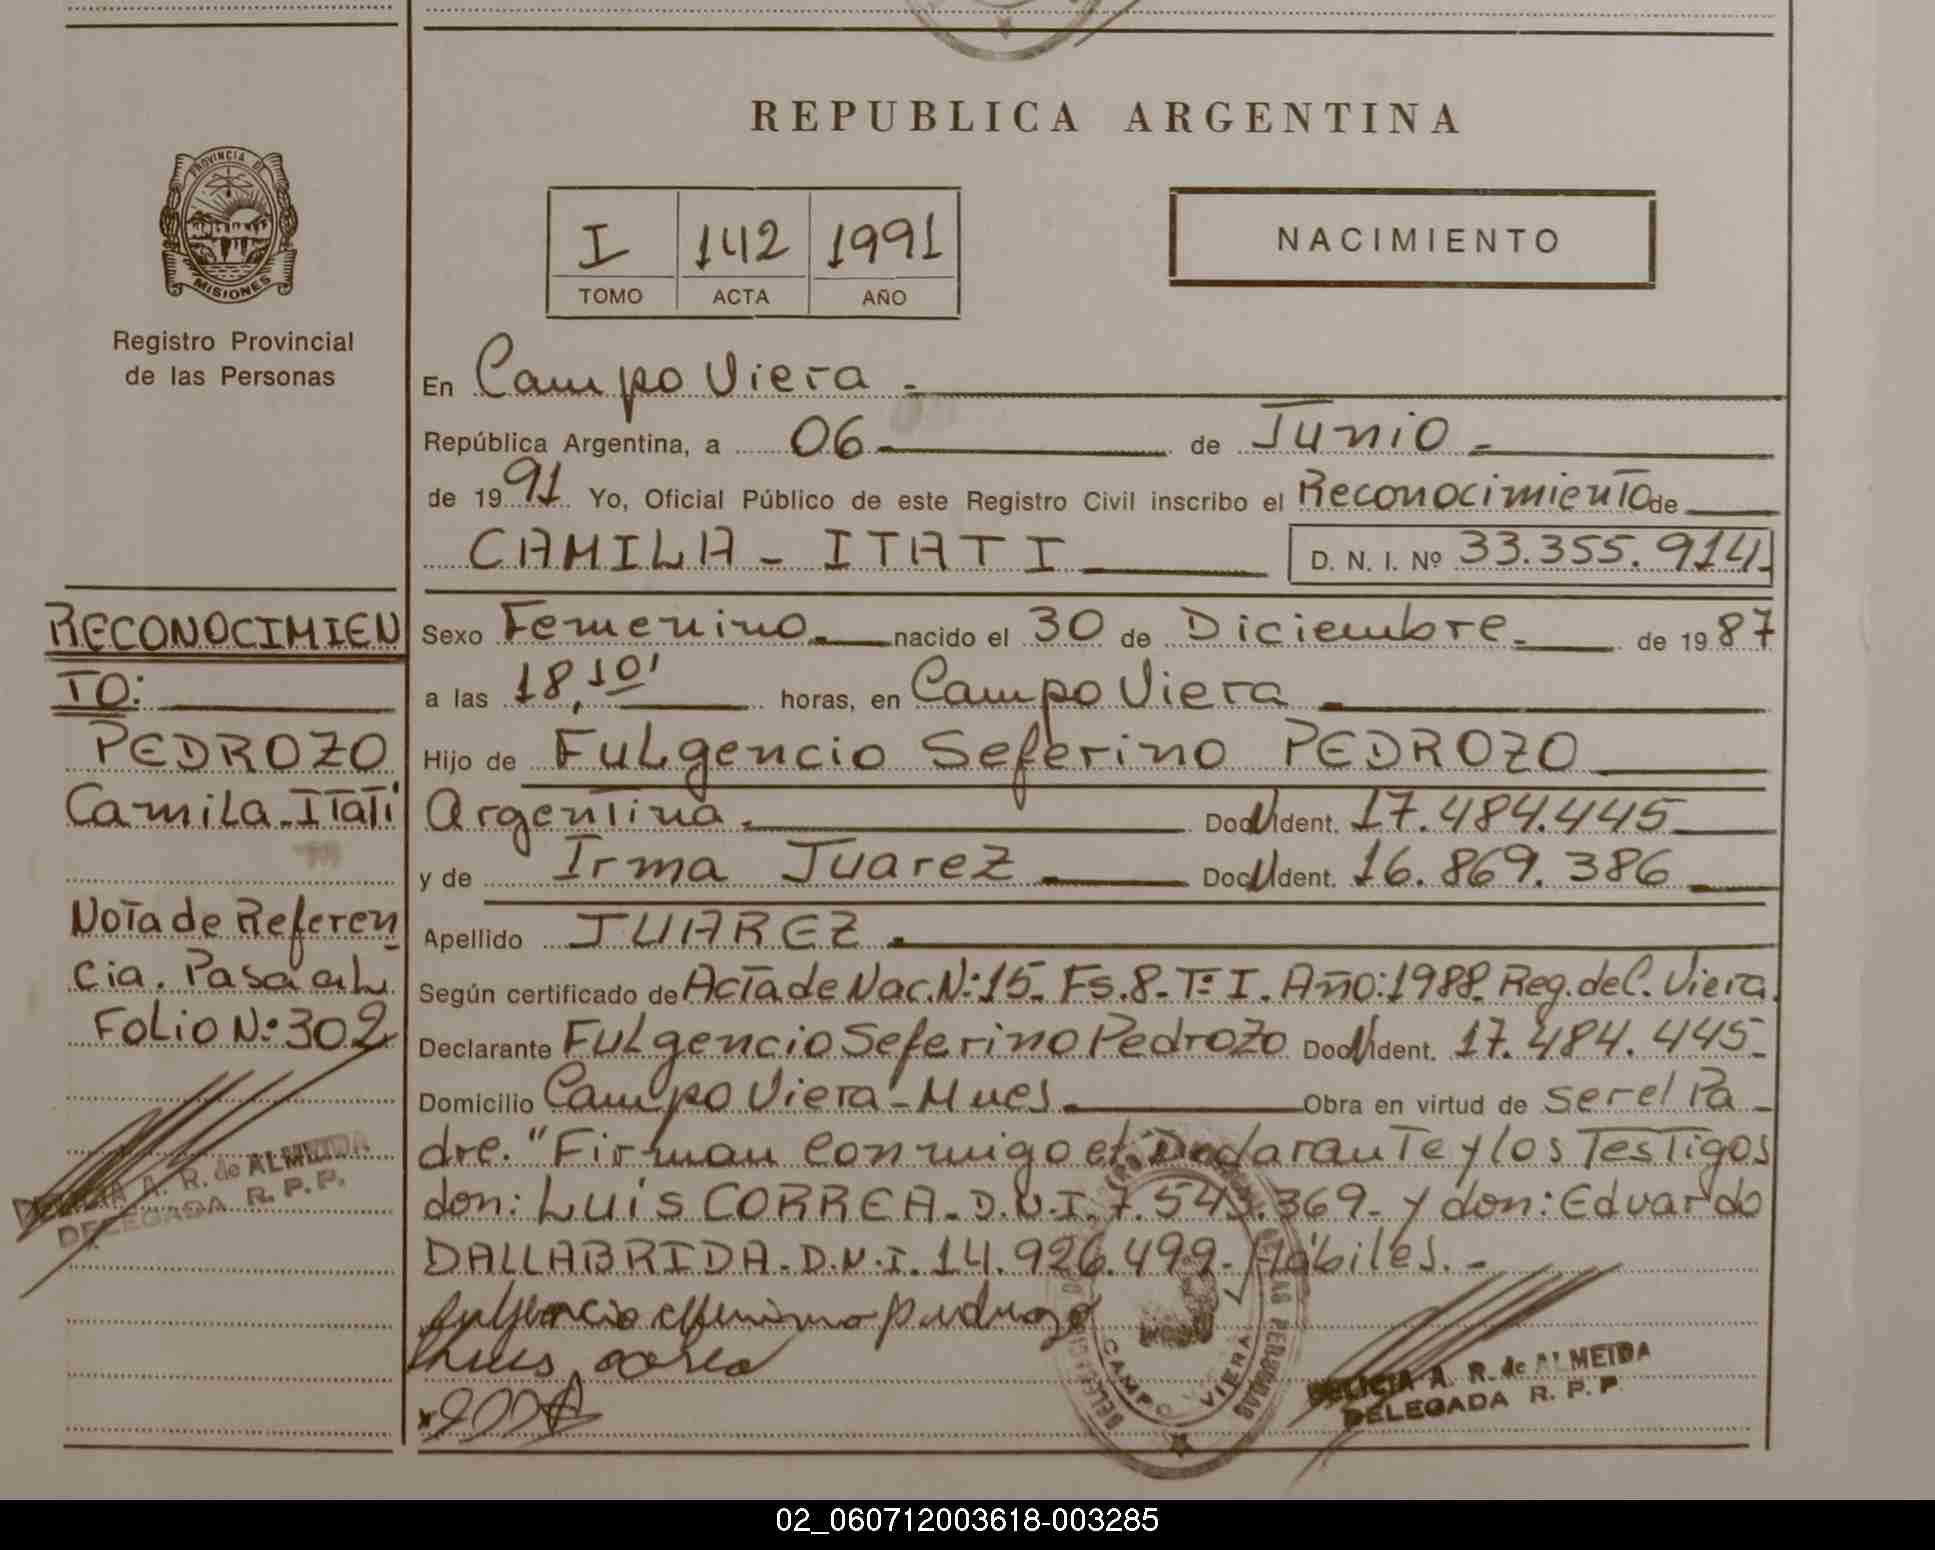 REPUBLICA ARGENTINA
PROVINCIA DE
MISIONES
Registro Provincial
de las Personas
I 142 1991
TOMO ACTA AÑO
NACIMIENTO
En Campo Viera.-
República Argentina, a 06 de Junio.-
de 1991 Yo, Oficial Público de este Registro Civil inscribo el Reconocimiento de
CAMILA - ITATI D. N. I. Nº 33.355.914
Sexo Femenino.- nacido el 30 de Diciembre.- de 1987
a las 18,10' horas, en Campo Viera
Hijo de Fulgencio Seferino PEDROZO
Argentina.- Doc. Ident. 17.484.445
y de Irma Juarez Doc. Ident. 16.869.386
Apellido JUAREZ.-
Según certificado de Acta de Nac.N:15- Fs.8-Tº I. Año:1988. Reg. de C. Viera.
Declarante Fulgencio Seferino Pedrozo Doc. Ident. 17.484.445-
Domicilio Campo Viera - Mnes. Obra en virtud de ser el Pa-
dre. "Firman conmigo el Declarante y los Testigos
don: LUIS CORREA - D.N.I. 7.545.369- y don: Eduardo
DALLABRIDA - D.N.I. 14.926.499- Hábiles.-
Luis correa
CAMPO VIERA
DELICIA A. R. de ALMEIDA
DELEGADA R. P. P.
RECONOCIMIEN
TO:
PEDROZO
Camila-Itatí
Nota de Referen
cia. Pasa al
Folio N:302
DELICIA A. R. de ALMEIDA
DELEGADA R. P. P.
02_060712003618-003285